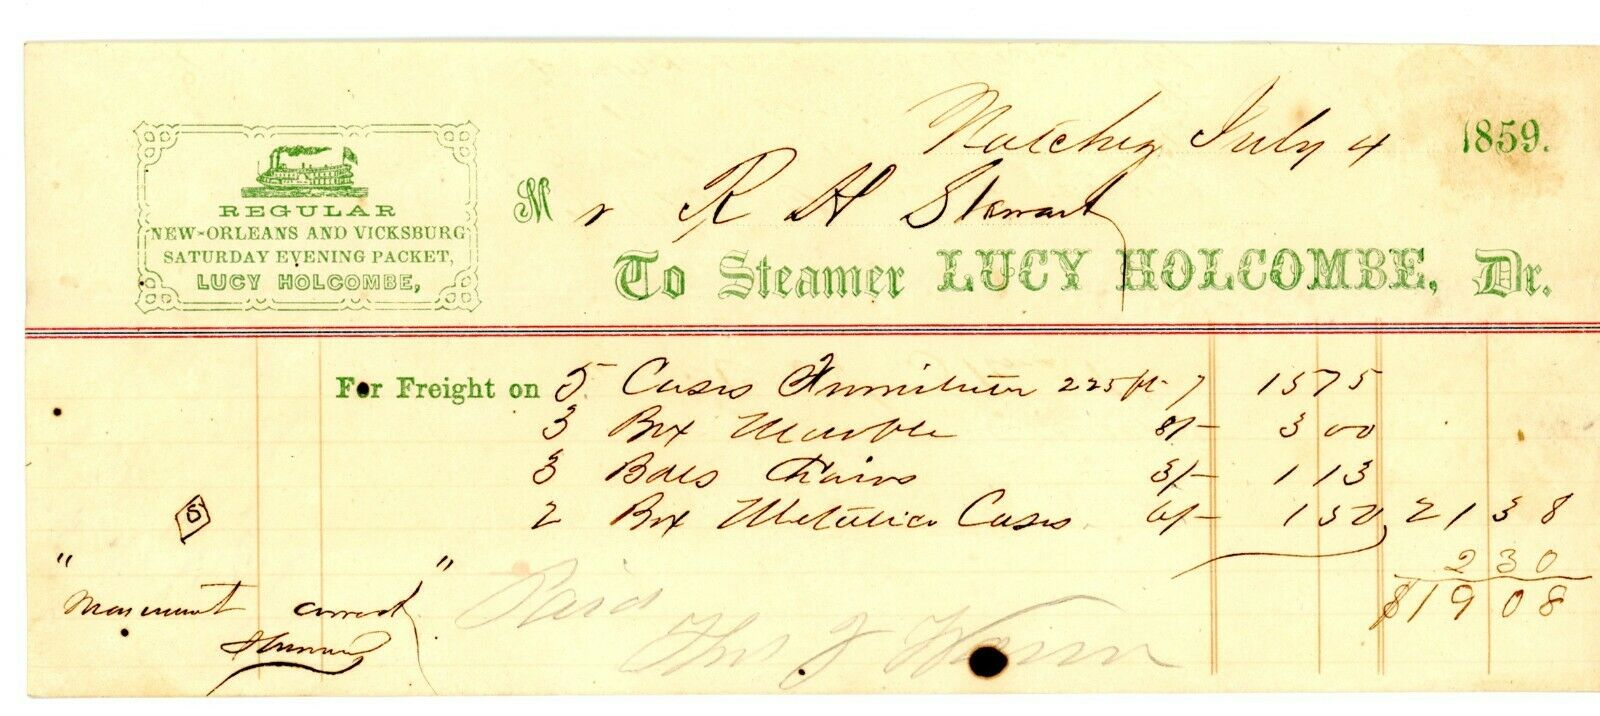 Natchez July 4 1859.
REGULAR
NEW-ORLEANS AND VICKSBURG
SATURDAY EVENING PACKET,
LUCY HOLCOMBE,
Mr R H Stewart
To Steamer LUCY HOLCOMBE, Dr.
For Freight on 5 Cases Furniture 225 ft 7 1575
3 Box Marble 8/- 300
3 Bdls Chairs 3/- 113
2 Box Metalica Cases 6/- 150 2138
S
230
" "
$1908
Mesurment correct
Paid
Thos J